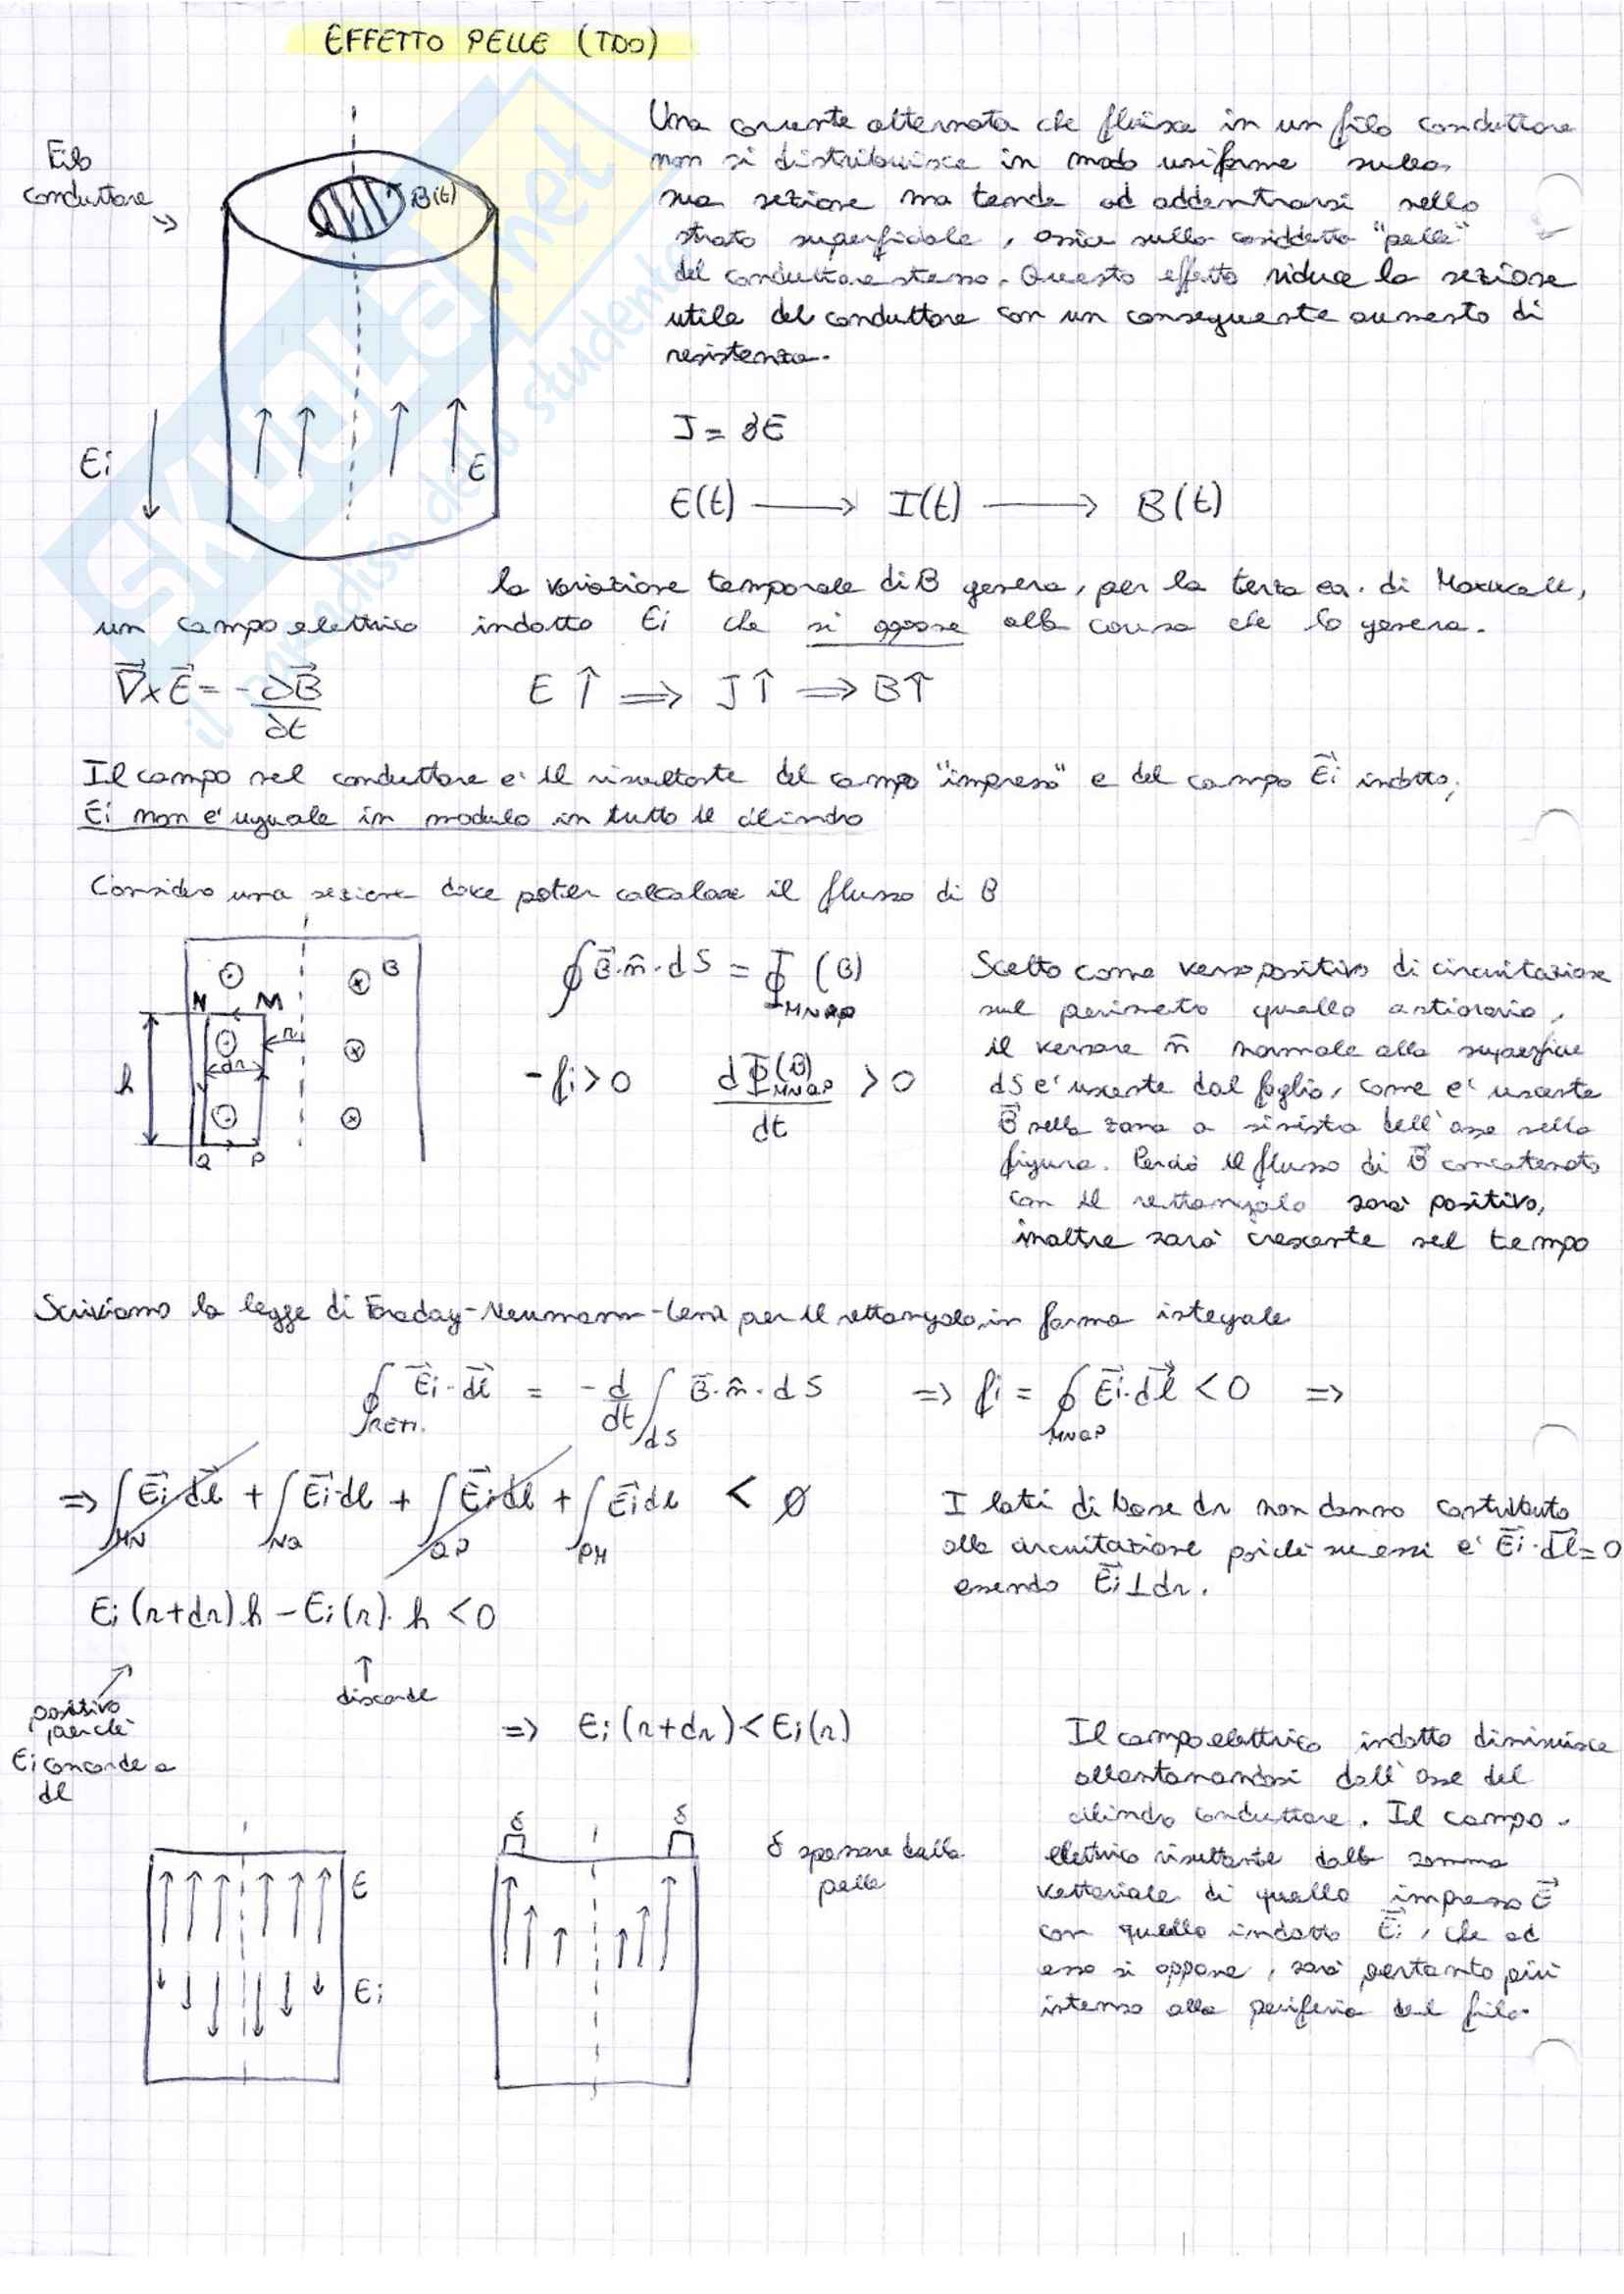 EFFETTO PELLE (TDO)
Filo
conduttore
B(t)
Ei
E
Una corrente alternata che fluisce in un filo conduttore
non si distribuisce in modo uniforme sulla
sua sezione ma tende ad addentrarsi nello
strato superficiale, ossia sulla cosiddetta "pelle"
del conduttore stesso. Questo effetto riduce la sezione
utile del conduttore con un conseguente aumento di
resistenza.
J = γE
E(t) → I(t) → B(t)
la variazione temporale di B genera, per la terza eq. di Maxwell,
un campo elettrico indotto Ei che si oppone alla causa che lo genera.
∇×E = -∂B/∂t
E ↑ ⇒ J↑ ⇒ B↑
Il campo nel conduttore e' il risultante del campo "impresso" e del campo Ei indotto;
Ei non e' uguale in modulo in tutto il cilindro
Considero una sezione dove poter calcolare il flusso di B
N M B
r
dr
h
Q P
∮ B·n̂·dS = Φ (B) MNQP
-fi > 0 dΦ(B) MNQP / dt > 0
Scelto come verso positivo di circuitazione
sul perimetro quello antiorario,
il versore n̂ normale alla superficie
dS e' uscente dal foglio, come e' uscente
B nella zona a sinistra dell'asse nella
figura. Perciò il flusso di B concatenato
con il rettangolo sarà positivo,
inoltre sarà crescente nel tempo
Scriviamo la legge di Faraday-Neumann-Lenz per il rettangolo, in forma integrale
∮RETT. Ei·dl = -d/dt ∫dS B·n̂·dS ⇒ fi = ∮MNQP Ei·dl < 0 ⇒
⇒ ∫MN Ei·dl + ∫NQ Ei·dl + ∫QP Ei·dl + ∫PM Ei dl < 0
I lati di base dr non danno contributo
alla circuitazione poichè su essi e' Ei·dl=0
essendo Ei⊥dr.
Ei(r+dr)·h - Ei(r)·h < 0
positivo
perchè
Ei concorde a
dl
discorde
⇒ Ei(r+dr) < Ei(r)
Il campo elettrico indotto diminuisce
allontanandosi dall'asse del
cilindro conduttore. Il campo
elettrico risultante dalla somma
vettoriale di quello impresso E
con quello indotto Ei, che ad
esso si oppone, sarà pertanto più
intenso alla periferia del filo.
E
Ei
δ δ
δ spessore della
pelle
SKUOLA.net
il paradiso dello studente